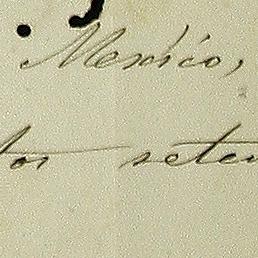 México,
tos seten